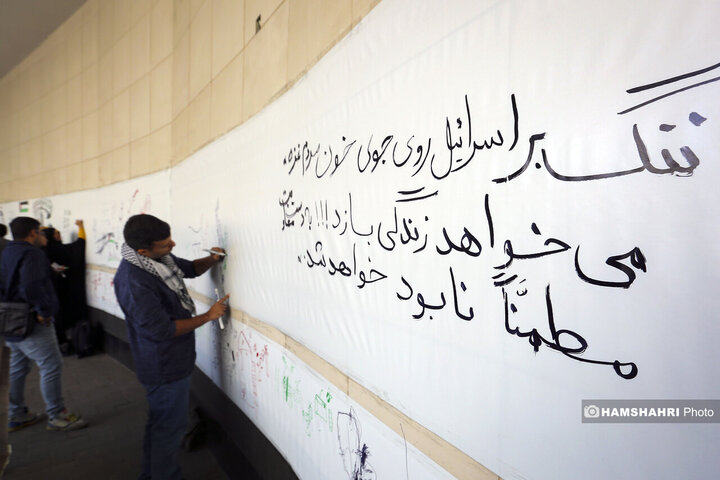 ننگ بر اسرائیل روی جوی خون مردم غزه.
می خواهد زندگی بازد!!! با دست مقاومت
مطمئناً نابود خواهد شد..
HAMSHAHRI Photo